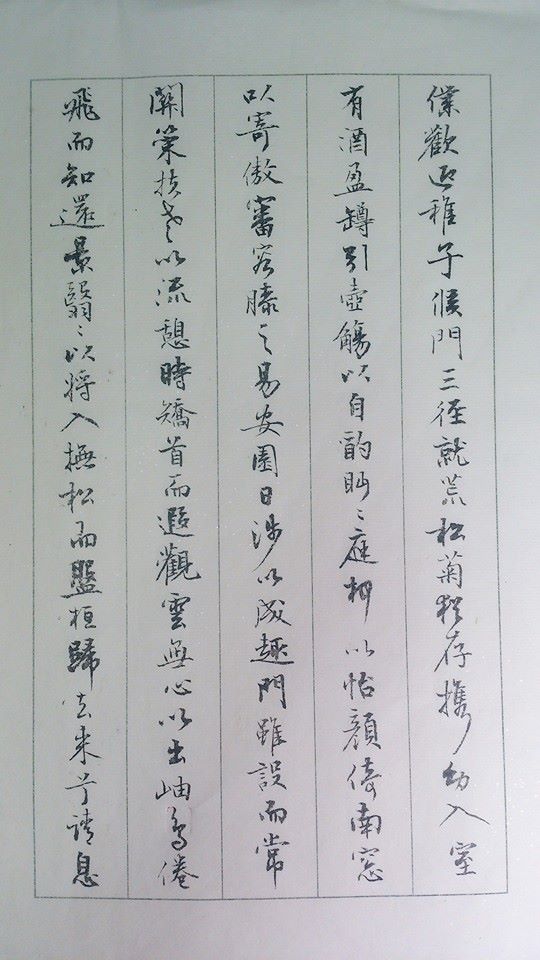 僕歡迎稚子候門三徑就荒松菊猶存攜幼入室
有酒盈罇引壺觴以自酌眄〻庭柯以怡顏倚南窓
以寄傲審容膝之易安園日涉以成趣門雖設而常
關策扶老以流憩時矯首而遐觀雲無心以出岫鳥倦
飛而知還景翳〻以將入撫松而盤桓歸去来兮請息